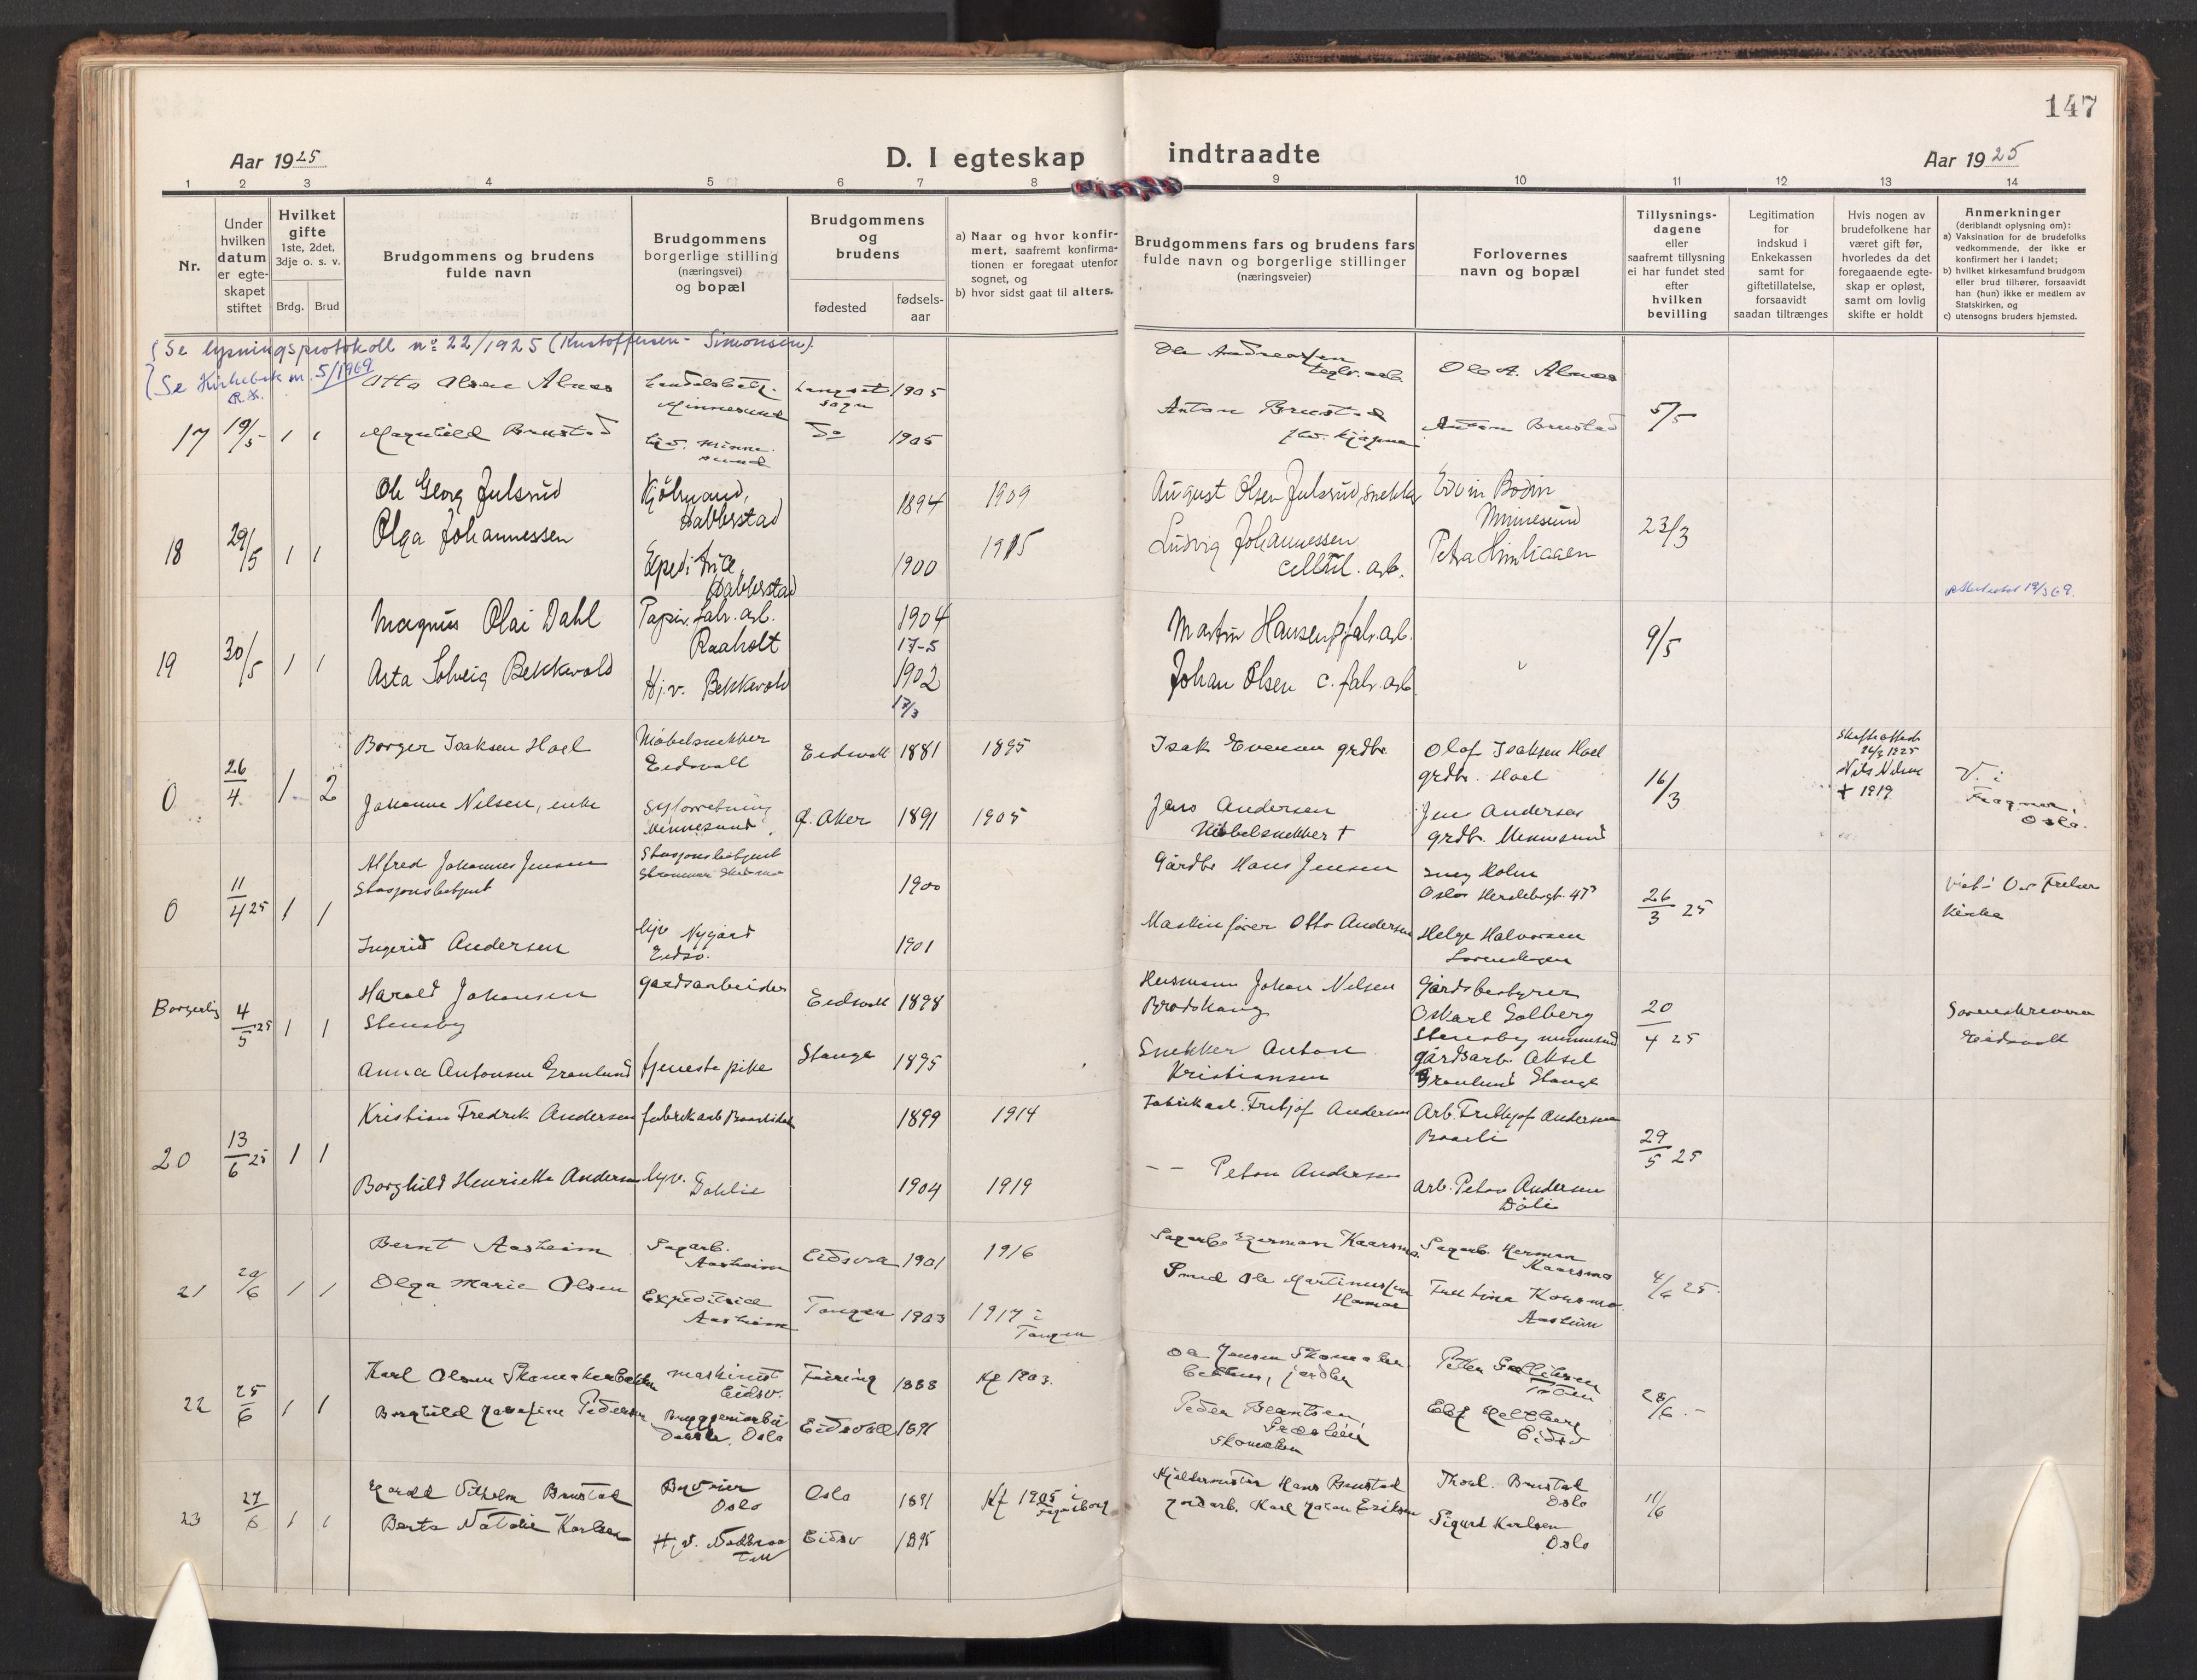 147
Aar 1925
D. I egteskap indtraadte
Aar 1925
1 2 3 4 5 6 7 8 9 10 11 12 13 14
Nr.
Under hvilken datum er egte-skapet stiftet
Hvilket gifte
1ste, 2det, 3dje o. s. v.
Brdg. Brud
Brudgommens og brudens fulde navn
Brudgommens borgerlige stilling (næringsvei) og bopæl
Brudgommens og brudens
fødested
fødsels-aar
a) Naar og hvor konfir-mert, saafremt konfirma-tionen er foregaat utenfor sognet, og
b) hvor sidst gaat til alters.
Brudgommens fars og brudens fars fulde navn og borgerlige stillinger (næringsveier)
Forlovernes navn og bopæl
Tillysnings-dagene eller saafremt tillysning ei har fundet sted efter hvilken bevilling
Legitimation for indskud i Enkekassen samt for giftetillatelse, forsaavidt saadan tiltrænges
Hvis nogen av brudefolkene har været gift før, hvorledes da det foregaaende egte-skap er opløst, samt om lovlig skifte er holdt
Anmerkninger (deriblandt oplysning om):
a) Vaksination for de brudefolks vedkommende, der ikke er konfirmert her i landet;
b) hvilket kirkesamfund brudgom eller brud tilhører, forsaavidt han (hun) ikke er medlem av Statskirken, og
c) utensogns bruders hjemsted.
Se lysningsprotokoll nº 22/1925 (Kristoffersen - Simonsen).
Se Kirkebok nr. 5/1969
Otto Olsen Alnes
Langset sogn 1905
Ole Andreassen teglv. arb.
Ole A. Alnes
17 19/5 1 1
Magnhild Brustad
Minnesund
do 1905
Anton Brustad
Anton Brustad
5/5
18 29/5 1 1
Ole Georg Julsrud
Kjølmand, Habberstad
1894 1909
August Olsen Julsrud, snekker
Edvin Bodin Minnesund
23/3
Olga Johannessen
Expeditrice, Habberstad
1900 1915
Ludvig Johannessen cellul. arb.
19 30/5 1 1
Magnus Olai Dahl
Papir. fabr. arb. Raaholt
1904 17-5
Martin Hansen, p. fabr. arb.
9/5
Asta Solveig Bekkevold
Hj. v. Bekkevold
1902 17/3
Johan Olsen c. fabr. arb.
0 26/4 1 2
Borger Isaksen Hoel
Møbelsnekker Eidsvoll
Eidsvoll 1881 1895
Isak Evensen grdbr.
Olaf Isaksen Hoel grdbr. Hoel
16/3
Skifteattest 26/3 1925 Nils Nilsen + 1919
V. i Frogner, Oslo.
Johanne Nilsen, enke
Syforretning Minnesund
Ø. Aker 1891 1905
Jens Andersen Møbelsnekker +
Jens Andersen grdbr. Minnesund
0 11/4 25 1 1
Alfred Johannes Jensen Stasjonsbetjent
Stasjonsbetjent
1900
Gårdbr Hans Jensen
26/3 25
Vor Frelser Kirke
Ingerid Andersen
hjv Nygård Eidsv.
1901
Maskinfører Otto Andersen
Helge Halvorsen
Borgerlig 4/5 25 1 1
Harald Johansen Stensby
gårdsarbeider
Eidsvoll 1898
Husmann Johan Nilsen
Gårdsbestyrer Oskar Solberg Stensby minnesund
20/4 25
Sorenskriveren Eidsvoll
Anna Antonsen Grønlund
tjenestepike
Stange 1895
Snekker Anton Kristiansen
gårdsarb. Aksel Grønlund Stange
20 13/6 25 1 1
Kristian Fredrik Andersen
1899 1914
Fabrikarb. Fritjof Andersen
Arb. Frithjof Andersen
29/5 25
Borghild Henriette Andersen
hjv. Dahlie
1904 1919
- - Peter Andersen
Arb. Peter Andersen Døli
21 20/6 1 1
Bernt Aasheim
Sagarb. Aasheim
Eidsvo 1901 1916
Sagarb. Herman Kaarsmo
Sagarb. Herman Kaarsmo
4/6 25.
Olga Marie Olsen
Expeditrice Aasheim
Tangen 1903 1917 i Tangen
Smed Ole Martinussen Hamar
Aasheim
22 25/6 1 1
Karl Olsen Skomakerbakken
maskinist Eidsv.
Feiring 1888 Kf 1903.
Borghild Josefine Pedersen
Bryggeriarbeiderske, Oslo
Eidsvoll 1891
Peder Berntsen,
Skomaker
23 27/6 1 1
Harald Vilhelm Brustad
Oslo
Oslo 1891 Kf 1905 i Fagerborg
Kjeldermester Hans Brustad
Thorl. Brustad Oslo
11/6
Berta Natalie Karlsen
Eidsv 1895
Jordarb. Karl Johan Eriksen
Sigurd Karlsen Oslo